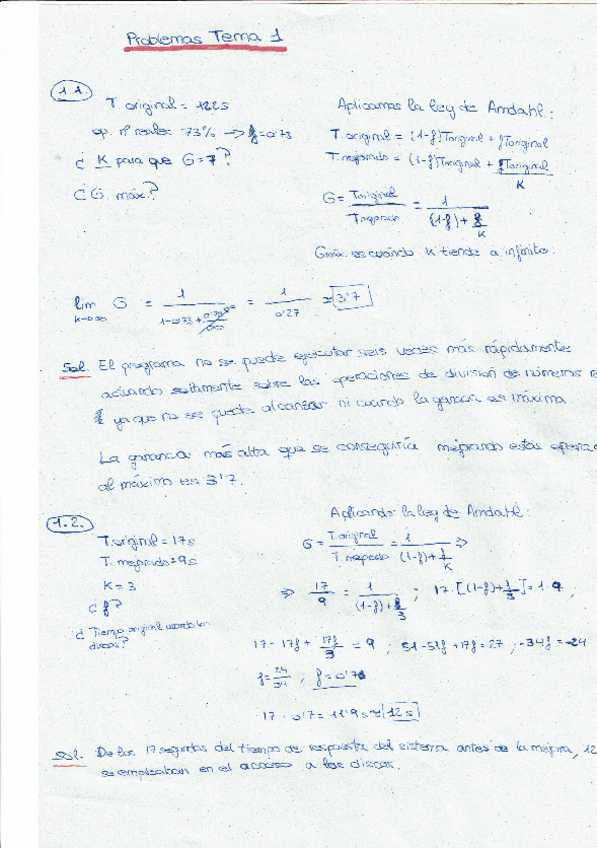 Problemas Tema 1
1.1
T original = 122s
op. nº reales 73% → f=0'73
¿ K para que G=7?
¿ G. máx.?
Aplicamos la ley de Amdahl:
T original = (1-f)Toriginal + fToriginal
T mejorado = (1-f)Toriginal + fToriginal/K
G = Toriginal/Tmejorado = 1/((1-f)+f/K)
Gmáx. es cuándo K tiende a infinito.
lim K→∞ G = 1/(1-0'73+0'73/∞) = 1/0'27 ≈ 3'7
Sol. El programa no se puede ejecutar seis veces más rápidamente
actuando solamente sobre las operaciones de división de números r
ya que no se puede alcanzar ni cuando la ganancia es máxima.
La ganancia más alta que se conseguiría mejorando estas operac
al máximo es 3'7.
1.2.
T.original = 17s
T. mejorado = 9s
K = 3
¿ f?
¿ Tiempo original usando los
discos?
Aplicando la ley de Amdahl:
G = T.original/T.mejorado = 1/((1-f)+f/K) ⇒
⇒ 17/9 = 1/((1-f)+f/3) ; 17·[(1-f)+f/3] = 1·9 ;
17-17f+17f/3 = 9 ; 51-51f+17f=27 ; -34f=-24
f=24/34 ; f=0'7
17 · 0'7 = 11'9s ≈ 12s
Sol. De los 17 segundos del tiempo de respuesta del sistema antes de la mejora, 12
se empleaban en el acceso a los discos.